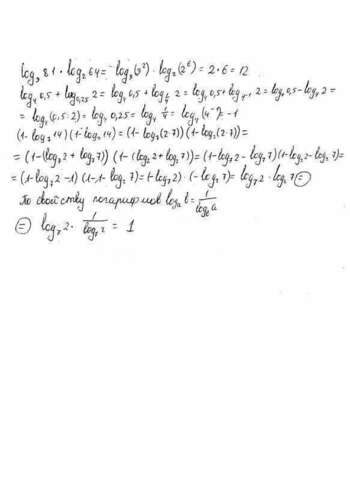 log₉ 81 · log₂ 64 = log₉(9²) · log₂(2⁶) = 2 · 6 = 12
log₄ 0,5 + log₀,₂₅ 2 = log₄ 0,5 + log_¼ 2 = log₄ 0,5 + log_4⁻¹ 2 = log₄ 0,5 - log₄ 2 =
= log₄(0,5 : 2) = log₄ 0,25 = log₄ ¼ = log₄(4⁻¹) = -1
(1 - log₇ 14)(1 - log₂ 14) = (1 - log₇(2·7))(1 - log₂(2·7)) =
= (1 - (log₇ 2 + log₇ 7)) (1 - (log₂ 2 + log₂ 7)) = (1 - log₇ 2 - log₇ 7)(1 - log₂ 2 - log₂ 7) =
= (1 - log₇ 2 - 1) (1 - 1 - log₂ 7) = (-log₇ 2) · (-log₂ 7) = log₇ 2 · log₂ 7 =
По свойству логарифмов logₐ b = 1/log_b a
= log₇ 2 · 1/log₇ 2 = 1